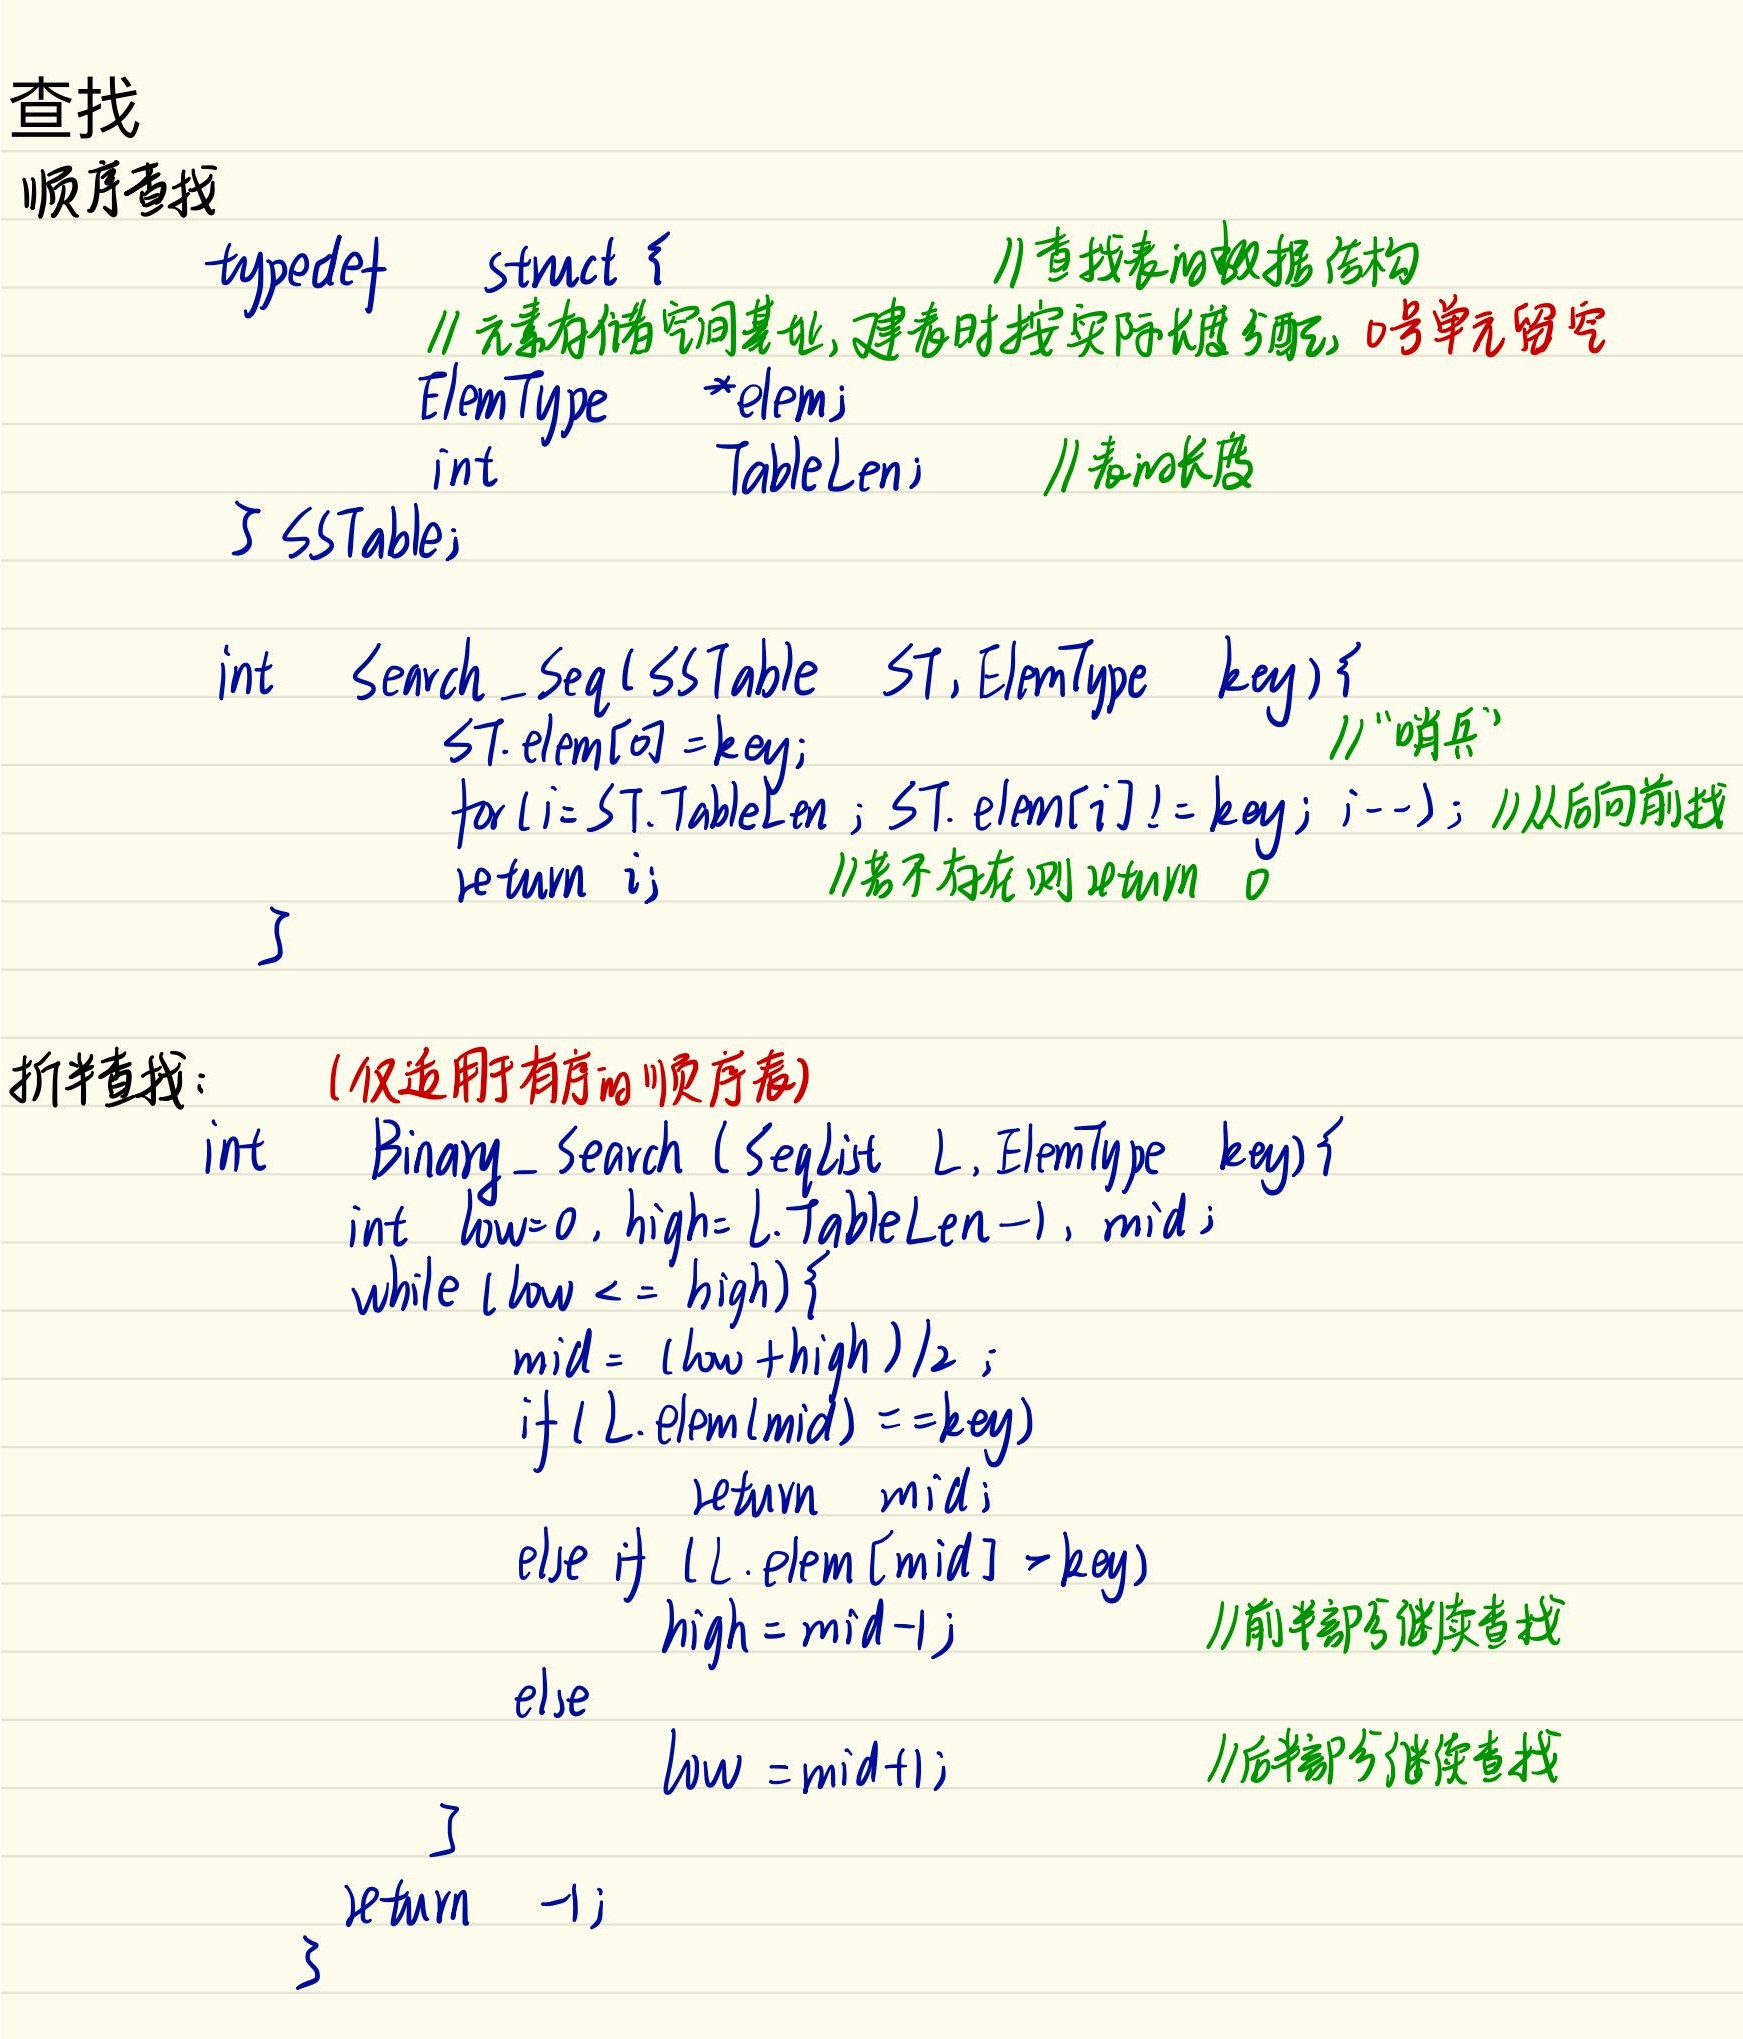 查找
顺序查找
typedef struct { //查找表的数据结构
//元素存储空间基址,建表时按实际长度分配,0号单元留空
ElemType *elem;
int TableLen; //表的长度
} SSTable;
int Search_Seq(SSTable ST, ElemType key){
ST.elem[0]=key; //“哨兵”
for(i=ST.TableLen; ST.elem[i]!=key; i--); //从后向前找
return i; //若不存在则return 0
}
折半查找: (仅适用于有序的顺序表)
int Binary_Search (SeqList L, ElemType key){
int low=0, high=L.TableLen-1, mid;
while (low <= high){
mid = (low+high)/2;
if(L.elem(mid)==key)
return mid;
else if (L.elem[mid]>key)
high=mid-1; //前半部分继续查找
else
low=mid+1; //后半部分继续查找
}
return -1;
}